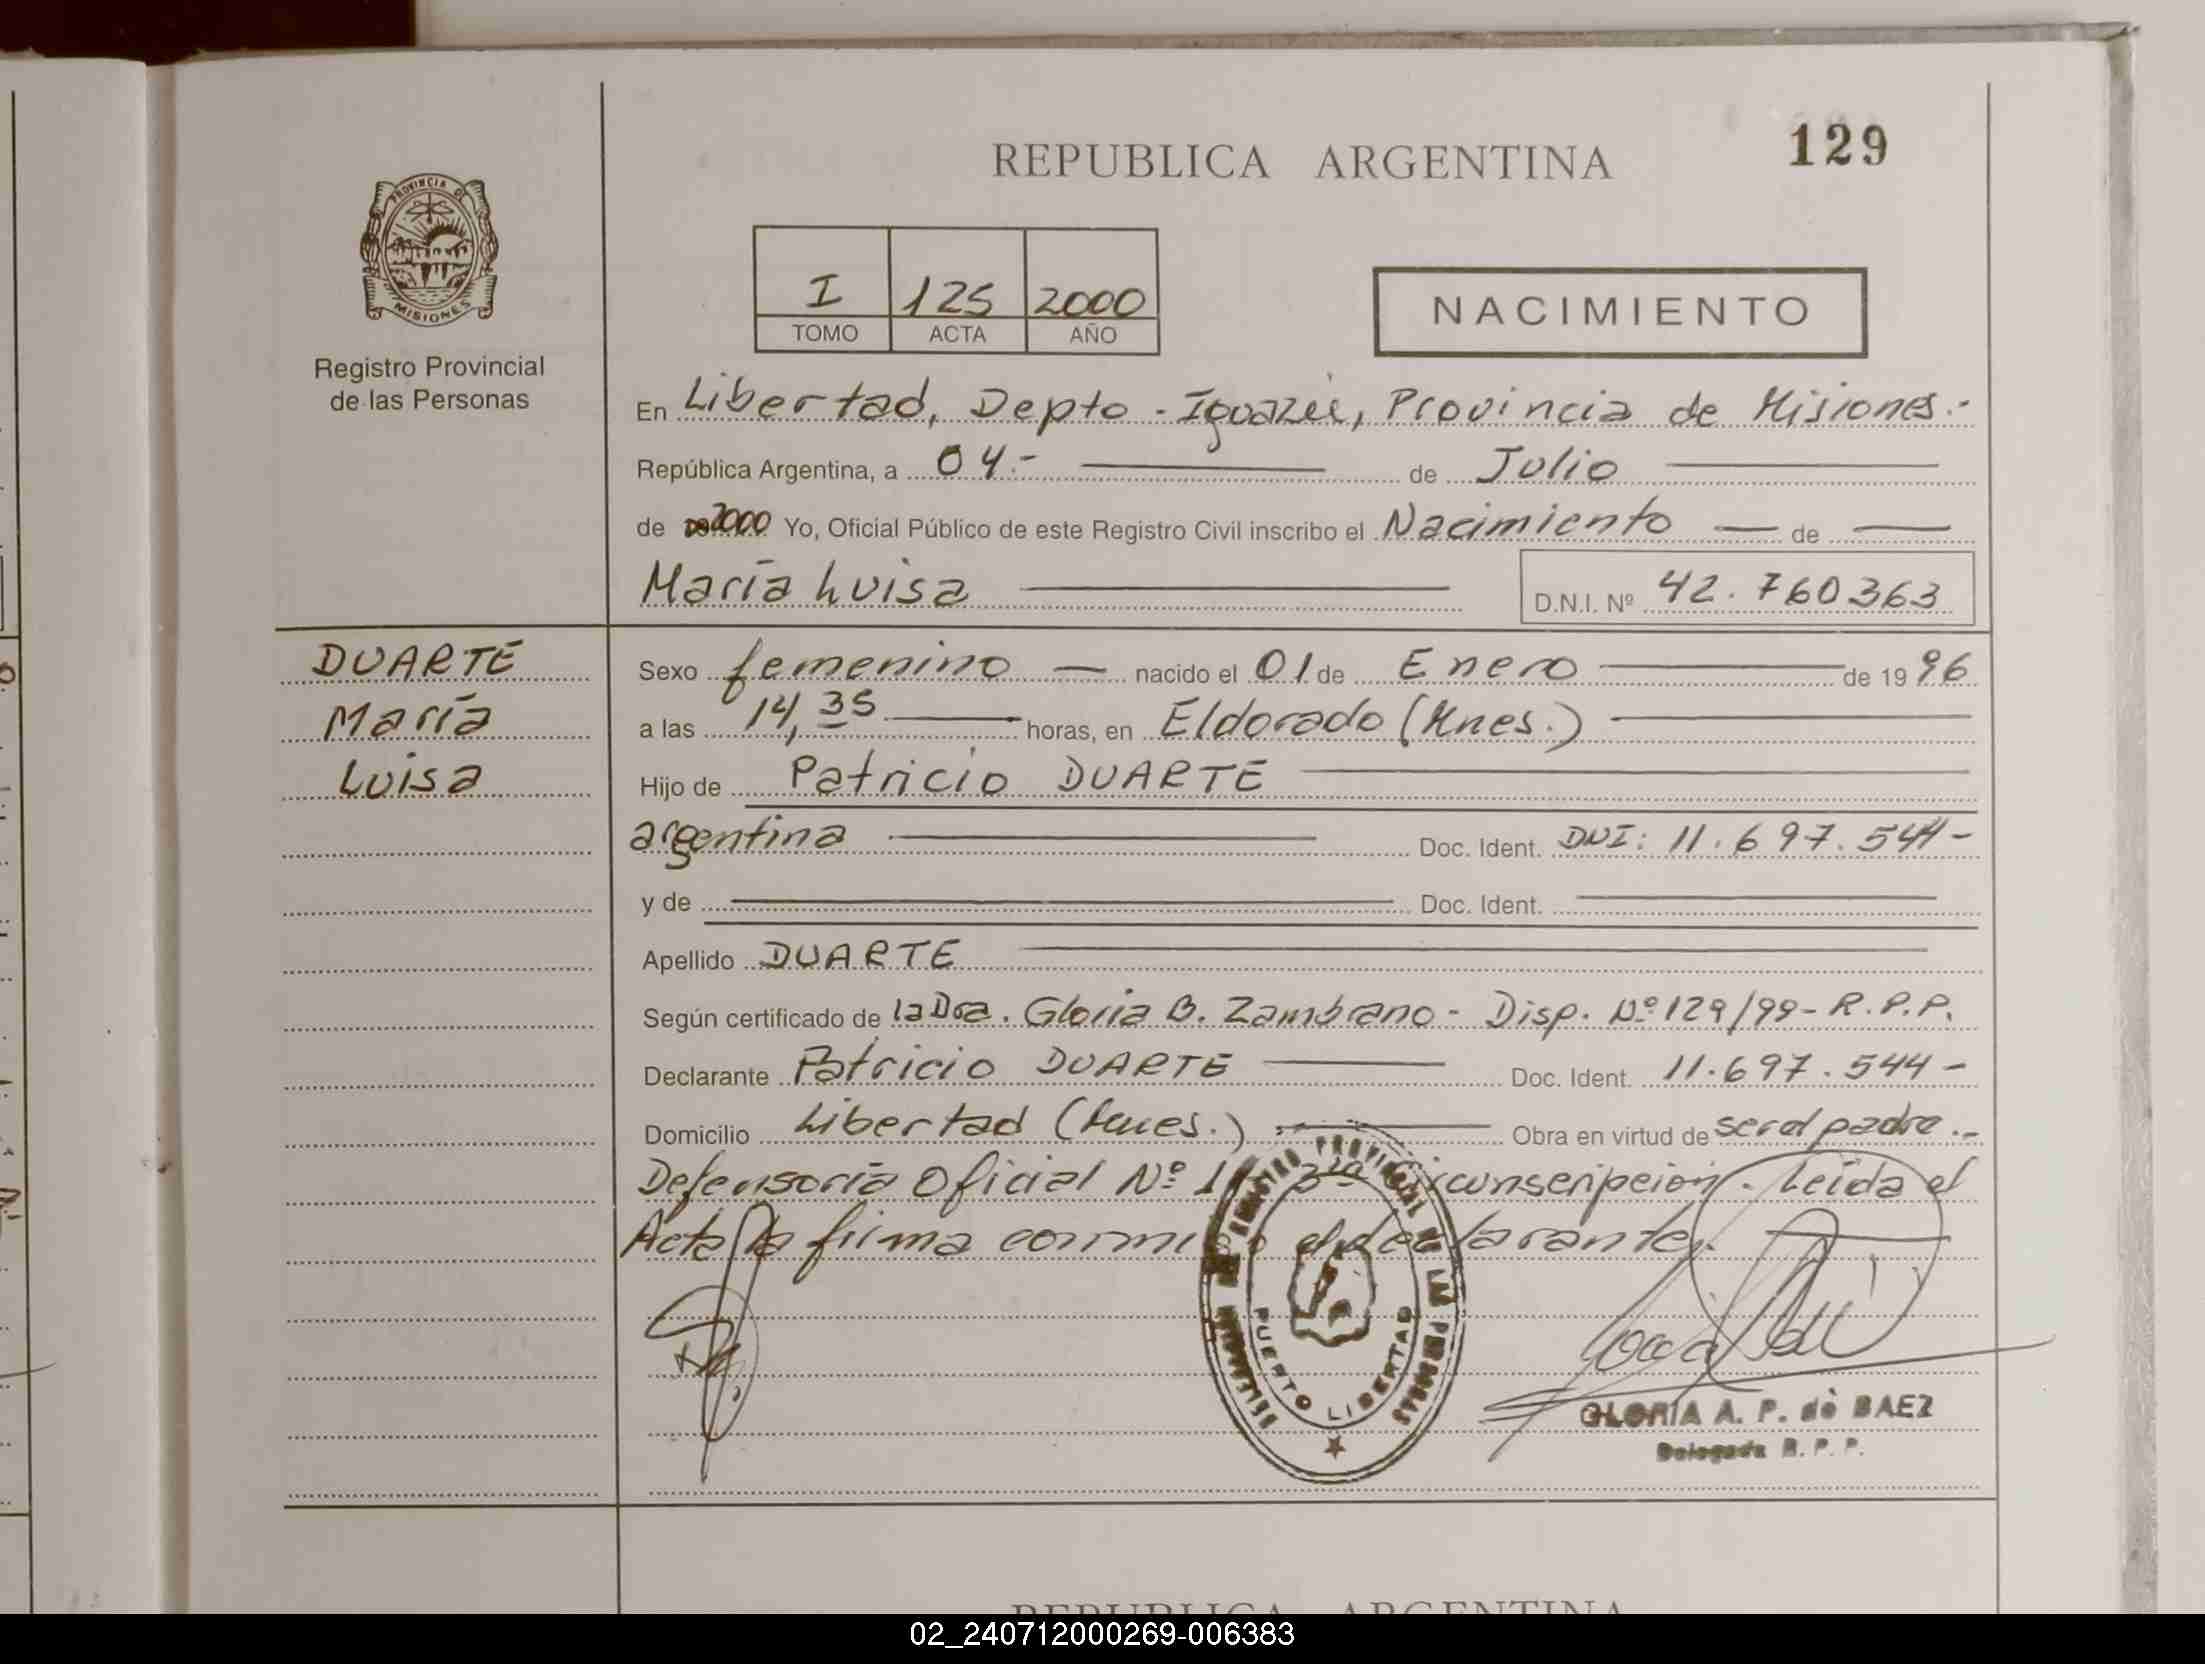 129
REPUBLICA ARGENTINA
PROVINCIA DE
MISIONES
Registro Provincial
de las Personas
I 125 2000
TOMO ACTA AÑO
NACIMIENTO
En Libertad, Depto - Iguazú, Provincia de Misiones.-
República Argentina, a 04.- de Julio
de 2000 Yo, Oficial Público de este Registro Civil inscribo el Nacimiento de
María Luisa
D.N.I. Nº 42.760363
DUARTE
María
Luisa
Sexo femenino nacido el 01 de Enero de 1996
a las 14,35 horas, en Eldorado (Mnes.)
Hijo de Patricio DUARTE
argentina Doc. Ident. DNI: 11.697.544-
y de Doc. Ident.
Apellido DUARTE
Según certificado de la Dra. Gloria B. Zambrano - Disp. Nº 129/99- R.P.P.
Declarante Patricio DUARTE Doc. Ident. 11.697.544-
Domicilio Libertad (Mnes.) Obra en virtud de ser el padre.-
Defensoría Oficial Nº 1 3ra Circunscripción. Leída el
Acta la firma conmigo el declarante.
REGISTRO PROVINCIAL DE LAS PERSONAS
PUERTO LIBERTAD
GLORIA A. P. de BAEZ
Delegada R. P. P.
REPUBLICA ARGENTINA
02_240712000269-006383